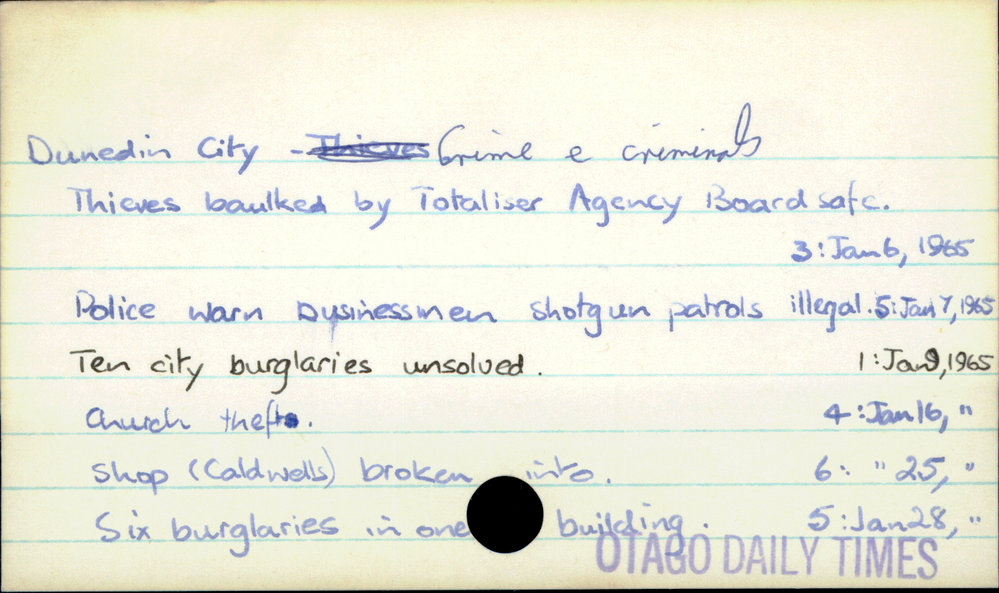 Dunedin City - Thieves Crime & criminals
Thieves baulked by Totaliser Agency Board safe.
3: Jan 6, 1965
Police warn businessmen shotgun patrols illegal. 5: Jan 7, 1965
Ten city burglaries unsolved. 1: Jan 9, 1965
Church thefts. 4: Jan 16, "
Shop (Caldwells) broken into. 6: " 25, "
Six burglaries in one building. 5: Jan 28, "
OTAGO DAILY TIMES